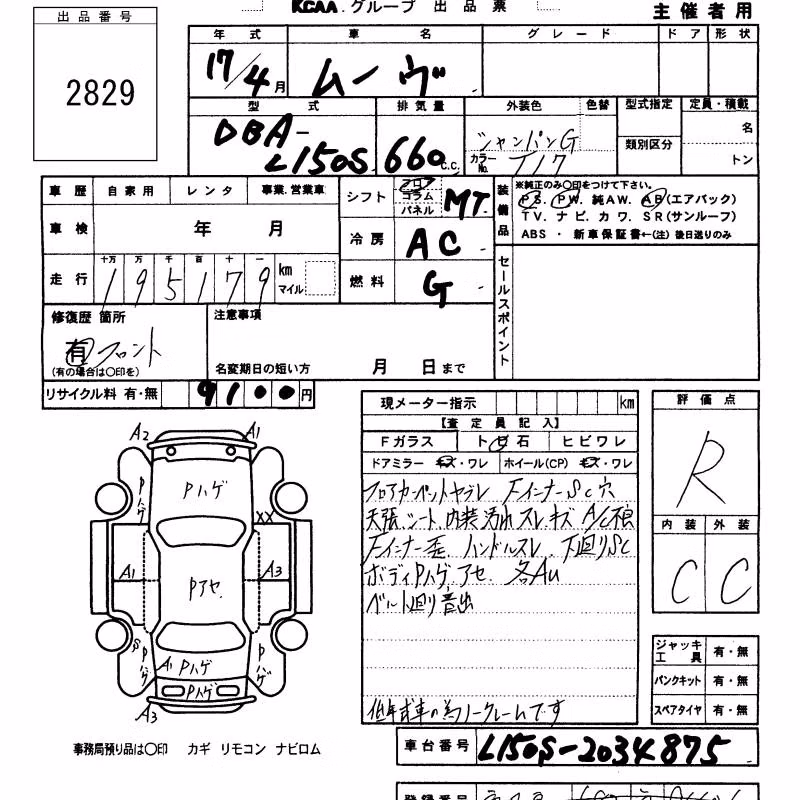 KCAA.グループ 出品票
主催者用
出品番号
2829
年式 車名 グレード ドア 形状
17/4月 ムーヴ
型式 排気量 外装色 色替 型式指定 定員・積載
DBA-L150S 660 c.c. シャンパンG カラーNo. T17 類別区分 名 トン
車歴 自家用 レンタ 事業.営業車
車検 年 月
走行 十万 万 千 百 十 一
195179 km マイル
シフト フロア コラム パネル MT
冷房 AC
燃料 G
装備品
※純正のみ〇印をつけて下さい。
PS. PW. 純AW. AB(エアバック)
TV. ナビ. カワ. SR(サンルーフ)
ABS ・ 新車保証書←(注) 後日送りのみ
セールスポイント
修復歴 箇所
有 フロント
(有の場合は〇印を)
注意事項
名変期日の短い方 月 日まで
リサイクル料 有・無 9100円
現メーター指示 km
【査定員記入】
Fガラス ト日石 ヒビワレ
ドアミラー キズ・ワレ ホイール(CP) キズ・ワレ
フロアカーペットヤブレ FインナーSc穴
天張.シート.内装汚れスレキズ A/C不良
Fインナー歪. ハンドルスレ. 下廻りSc
ボディPハゲ.アセ. 各AU
ベルト廻り音出
低年式車の為ノークレームです
評価点
R
内装 外装
C C
ジャッキ工具 有・無
パンクキット 有・無
スペアタイヤ 有・無
A2 A1
Pハゲ
Pハゲ
XX
A1 Pアセ. A3
S Pハゲ
A1 Pハゲ
Pハゲ
Pハゲ
A3
事務局預り品は〇印 カギ リモコン ナビロム
車台番号 L150S-2034875
登録番号